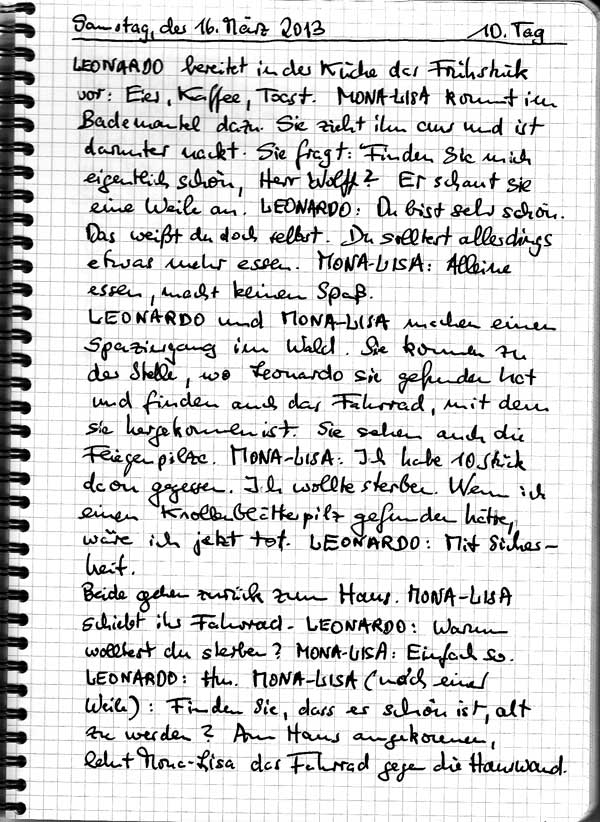 Samstag, des 16. März 2013 10. Tag
LEONARDO bereitet in der Küche das Frühstück
vor: Eier, Kaffee, Toast. MONA-LISA kommt im
Bademantel dazu. Sie zieht ihn aus und ist
darunter nackt. Sie fragt: Finden Sie mich
eigentlich schön, Herr Wolff? Er schaut sie
eine Weile an. LEONARDO: Du bist sehr schön.
Das weißt du doch selbst. Du solltest allerdings
etwas mehr essen. MONA-LISA: Alleine
essen, macht keinen Spaß.
LEONARDO und MONA-LISA machen einen
Spaziergang im Wald. Sie kommen zu
der Stelle, wo Leonardo sie gefunden hat
und finden auch das Fahrrad, mit dem
sie hergekommen ist. Sie sehen auch die
Fliegenpilze. MONA-LISA: Ich habe 10 Stück
davon gegessen. Ich wollte sterben. Wenn ich
einen Knollenblätterpilz gefunden hätte,
wäre ich jetzt tot. LEONARDO: Mit Sicher-
heit.
Beide gehen zurück zum Haus. MONA-LISA
schiebt ihr Fahrrad. LEONARDO: Warum
wolltest du sterben? MONA-LISA: Einfach so.
LEONARDO: Hm. MONA-LISA (nach einer
Weile): Finden Sie, dass es schön ist, alt
zu werden? Am Haus angekommen,
lehnt Mona-Lisa das Fahrrad gegen die Hauswand.